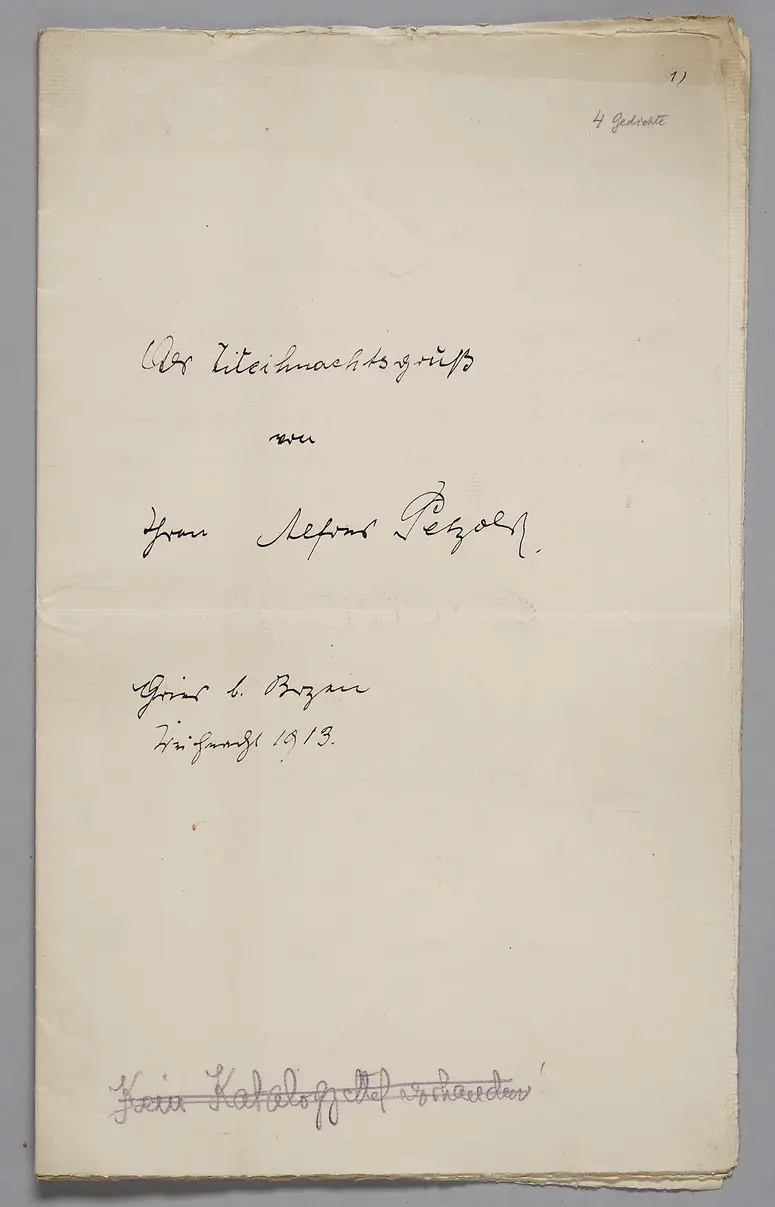 1)
4 Gedichte
Als Weihnachtsgruß
von
Ihren Alfons Petzold.
Gries b. Bozen
Weihnacht 1913.
Kein Katalogzettel vorhanden!